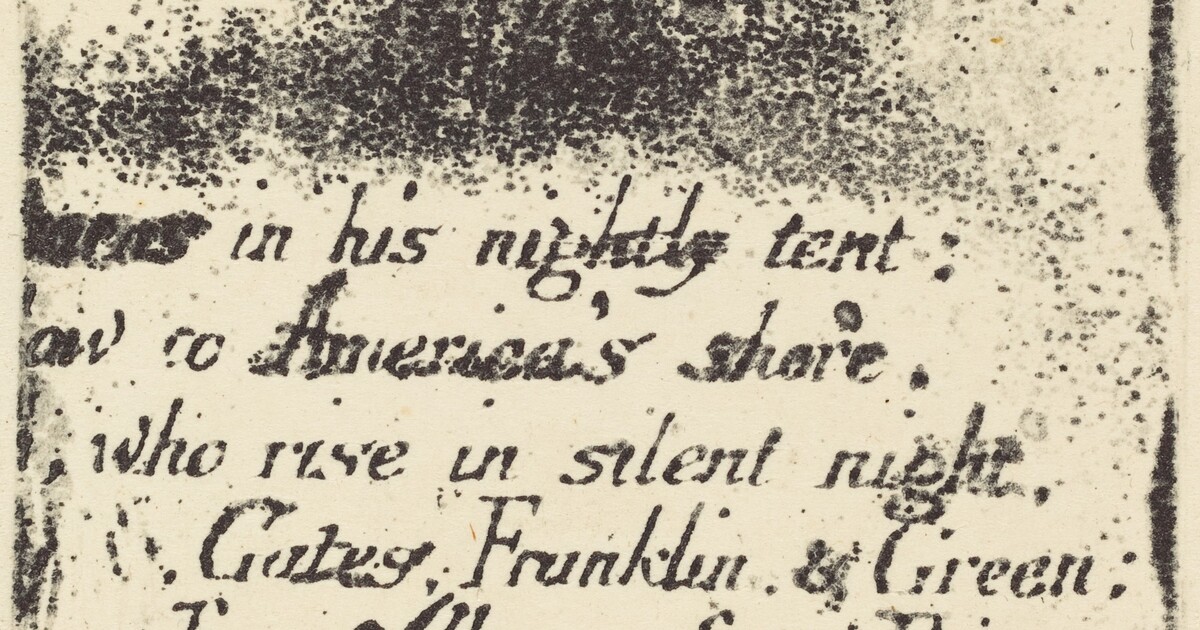 in his nightly tent :
to America's shore .
, who rise in silent night ,
. Gates, Franklin . & Green :